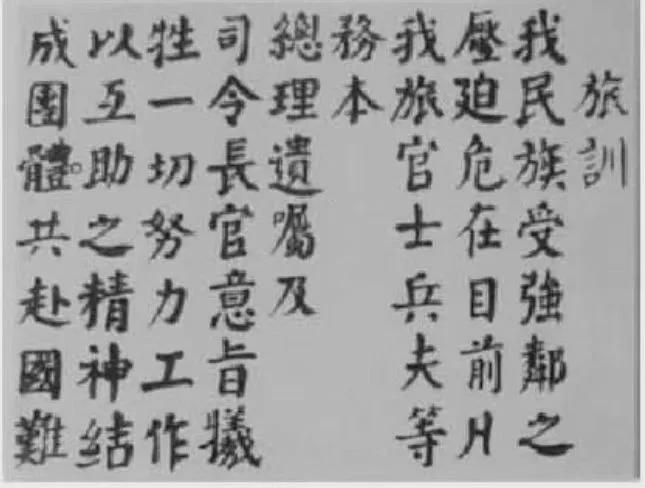 旅訓
我民族受強鄰之
壓迫危在目前凡
我旅官士兵夫等
務本
總理遺囑及
司令長官意旨犧
牲一切努力工作
以互助之精神結
成團體。共赴國難